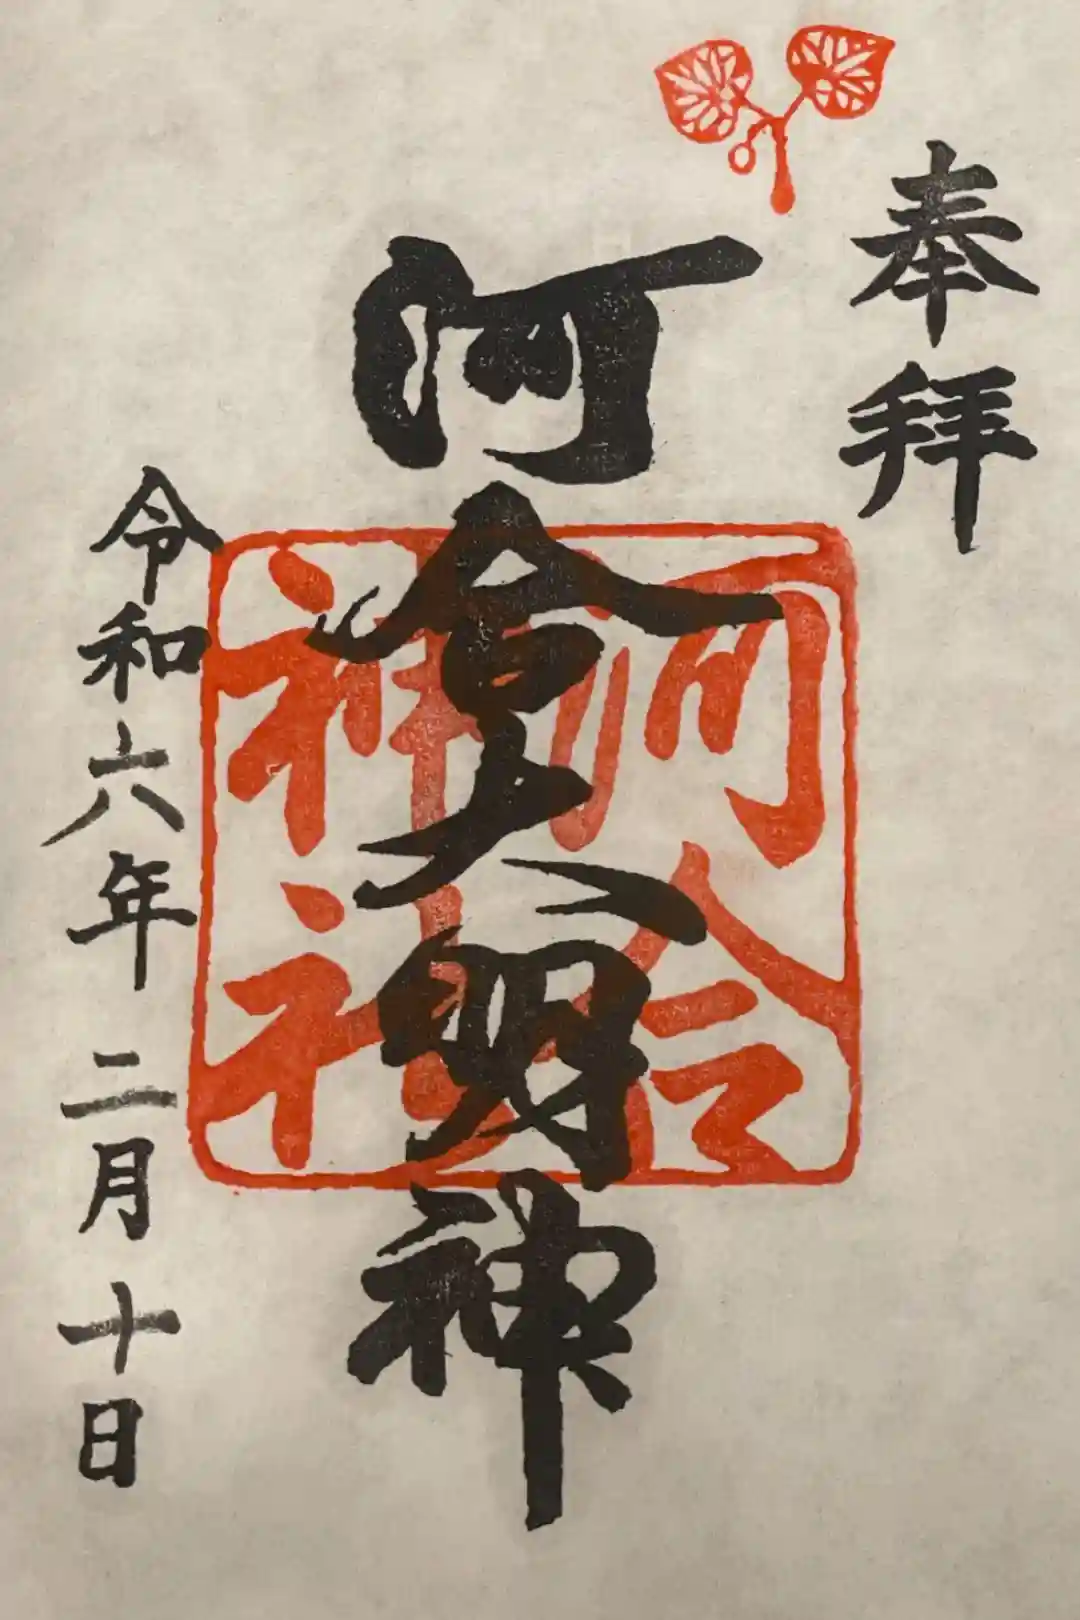 奉拝
河合大明神
河合
神社
令和六年二月十日